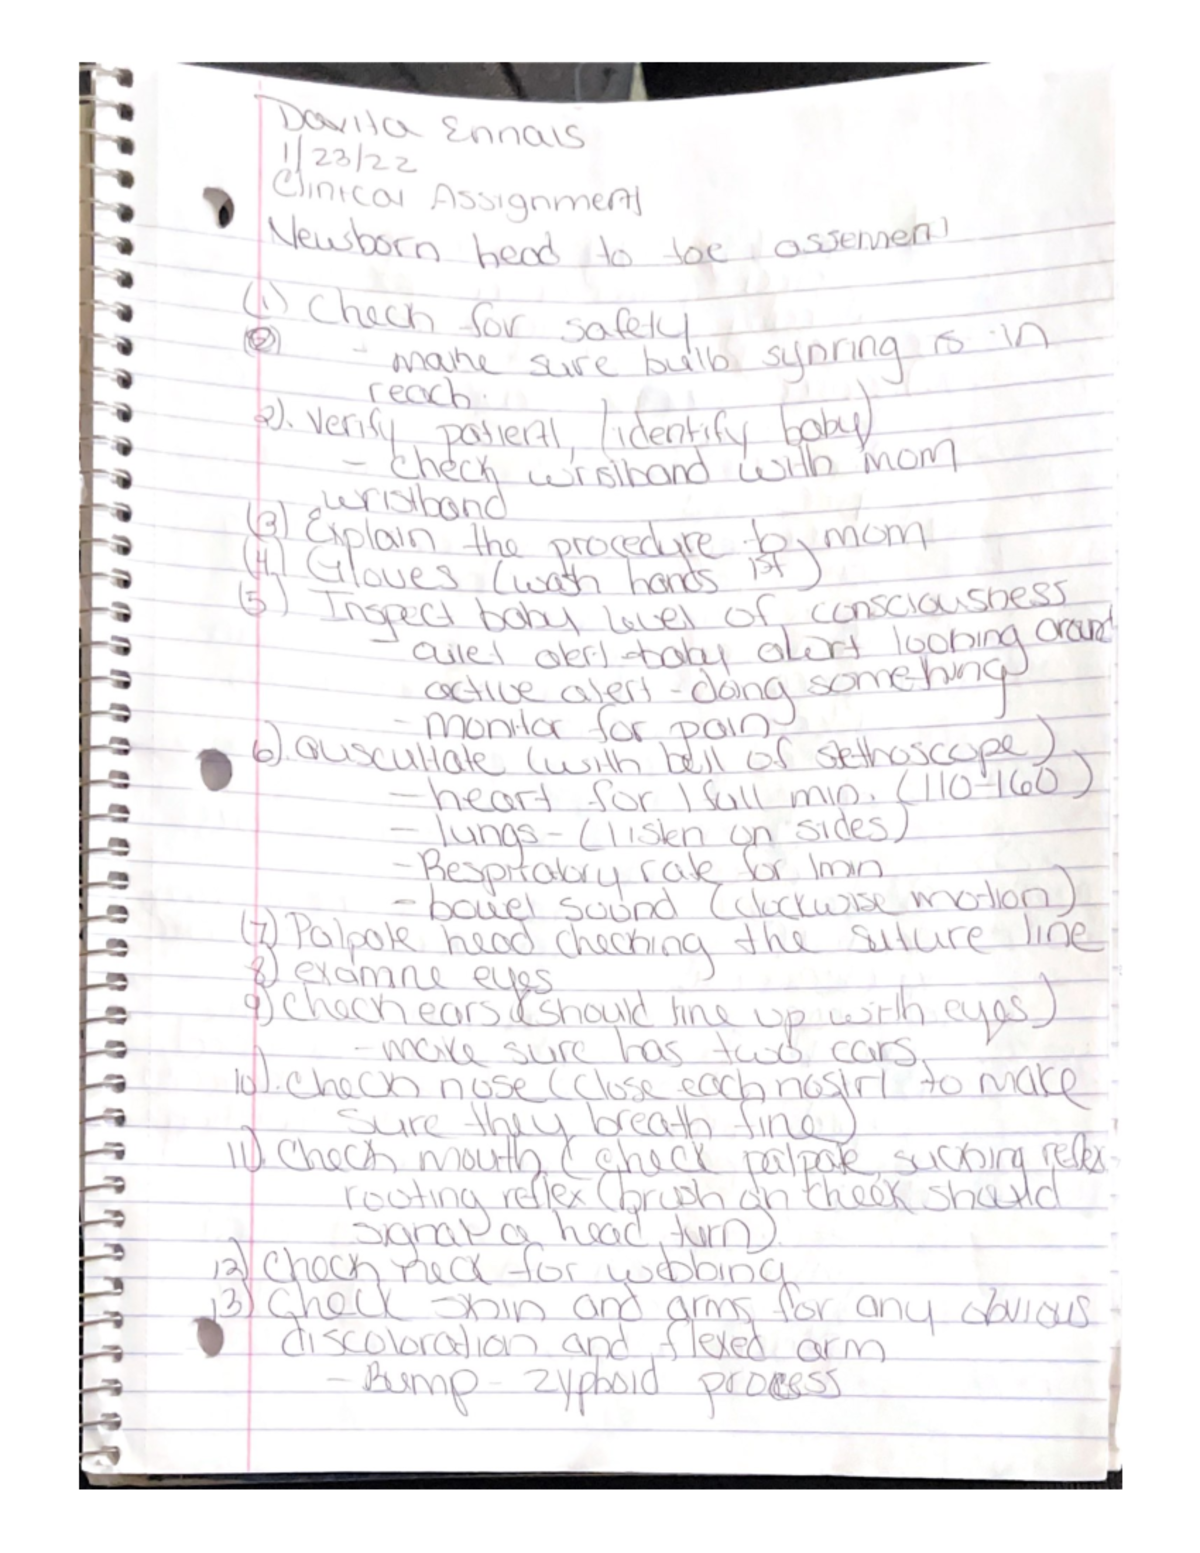 Davita Ennais
1/23/22
Clinical Assignment
Newborn head to toe assement
(1) Check for safety
(2) - make sure bulb synring is in
reach.
2). Verify patient, (identify baby)
- check wristband with mom
wristband
(3) Explain the procedure to mom
(4) Gloves (wash hands 1st)
(5) Inspect baby level of consciousness
quiet alert - baby alert looking around
active alert - doing something
- monitor for pain
6). auscultate (with bell of stethoscope)
- heart for 1 full min. (110-160)
- lungs - (listen on sides)
- Respiratory rate for 1min
- bowel sound (clockwise motion)
(7) Palpate head checking the suture line
8) examine eyes
9) Check ears (should line up with eyes)
- make sure has two ears.
10). Check nose (close each nostrl to make
sure they breath fine)
11) Check mouth (check palpate, sucking reflex
rooting reflex (brush on cheek should
signal a head turn).
12) Check neck for webbing
13) Check skin and arms for any obvious
discoloration and flexed arm
- Bump - zyphoid process